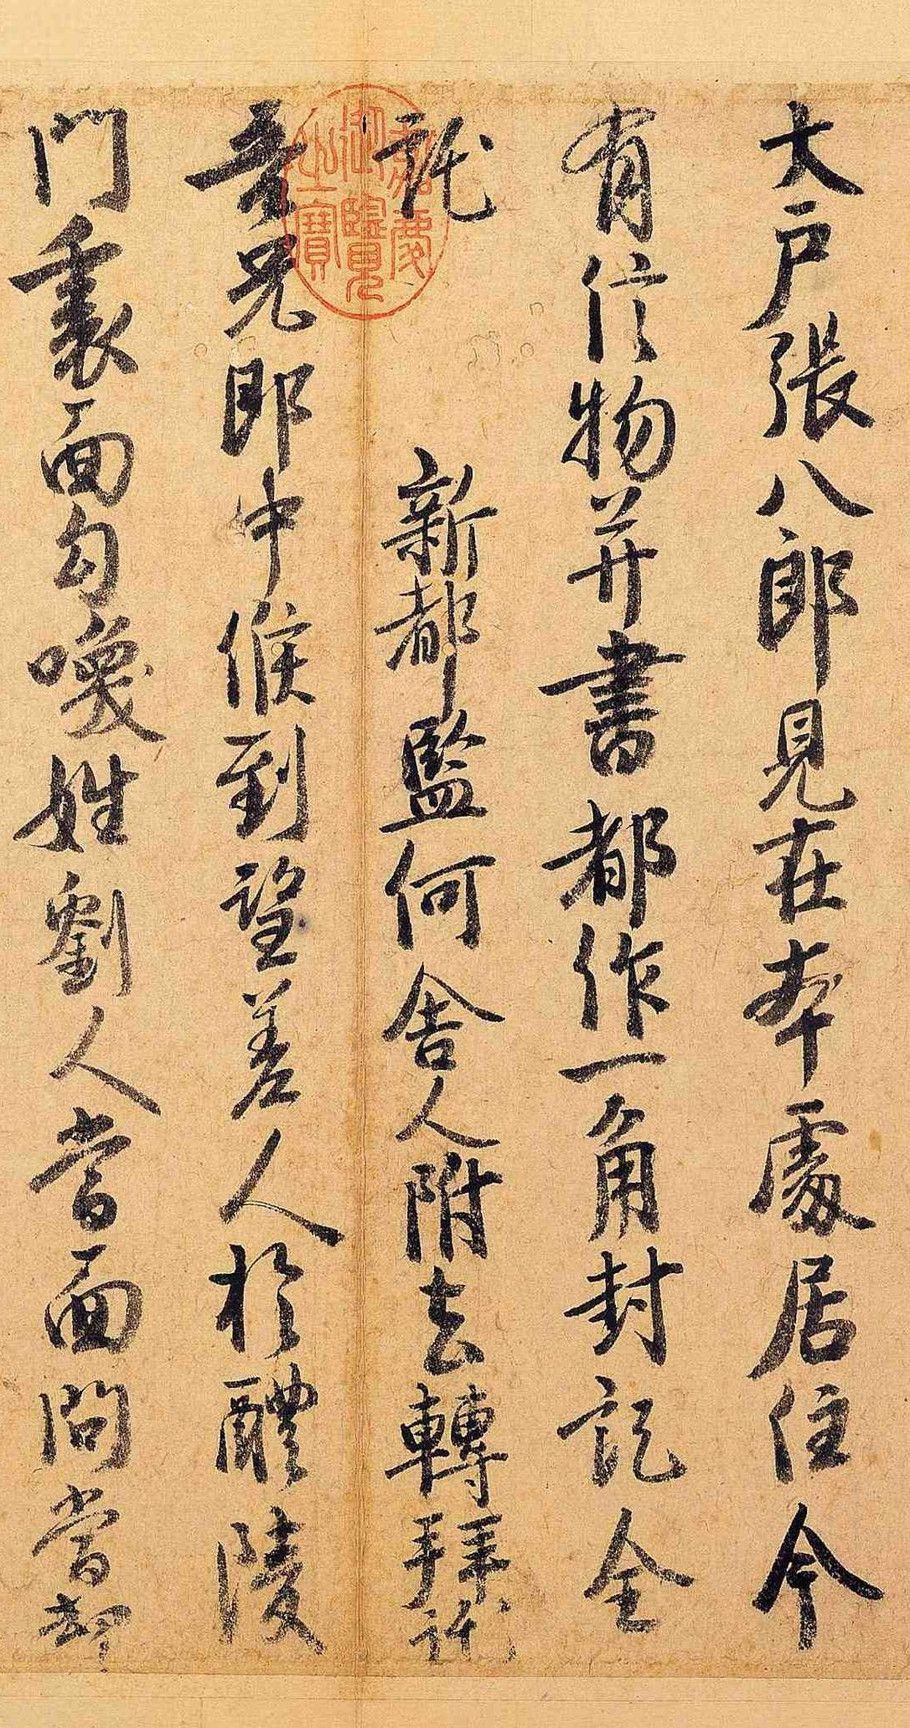 大戶張八郎見在本處居住今
有信物并書都作一角封訖全
託　新都監何舍人附去轉拜託
吾兄郎中候到望差人於醴陵
門裏面勾喚姓劉人當面問當却
嘉慶御覽之寶